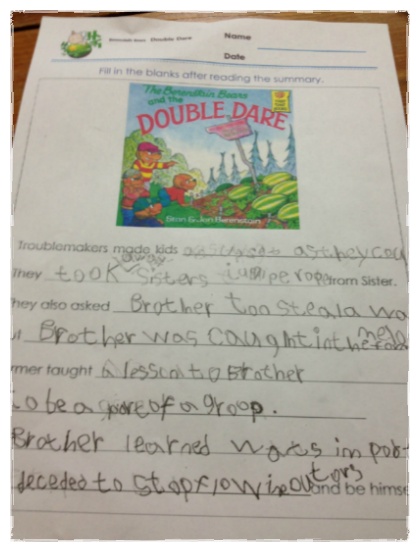 Berenstain Bears Double Dare
Name
Date
Fill in the blanks after reading the summary.
The Berenstain Bears
and the
DOUBLE DARE
Stan & Jan Berenstain
Troublemakers made kids as they cou
They took Sisters jumpe rope from Sister.
hey also asked Brother too steal a wa
Brother was caught in the
rmer taught a lesson to Brother
to be a part of a group.
Brother learned wats im port
deceded to stop and be himse